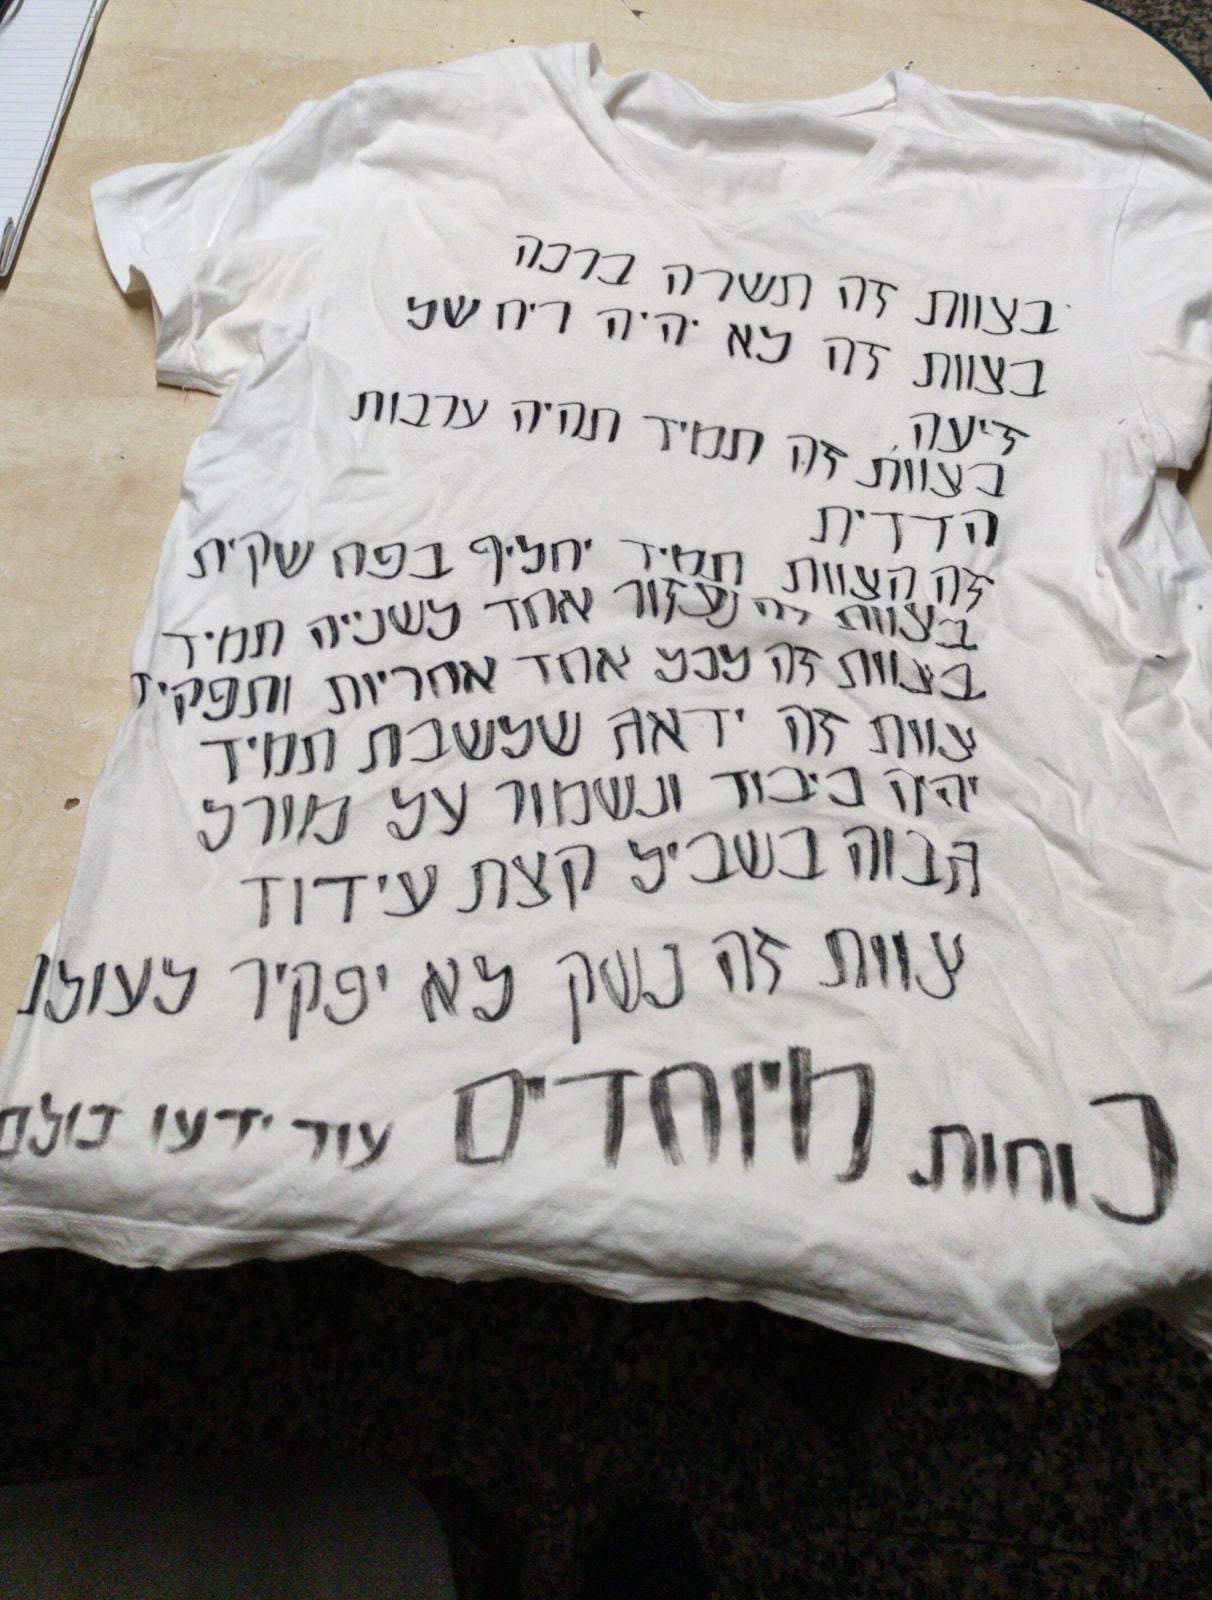 בצוות זה תשרה ברכה
בצוות זה לא יהיה ריח של
זיעה
בצוות זה תמיד תהיה ערבות
הדדית
זה הצוות תמיד יחליף בפח שקית
בצוות זה נעזור אחד לשנייה תמיד
בצוות זה לכל אחד אחריות ותפקיד
צוות זה ידאג שלשבת תמיד
יהיה כיבוד ונשמור על מורל
גבוה בשביל קצת עידוד
צוות זה נשק לא יפקיר לעולם
כוחות מיוחדים עוד ידעו כולם